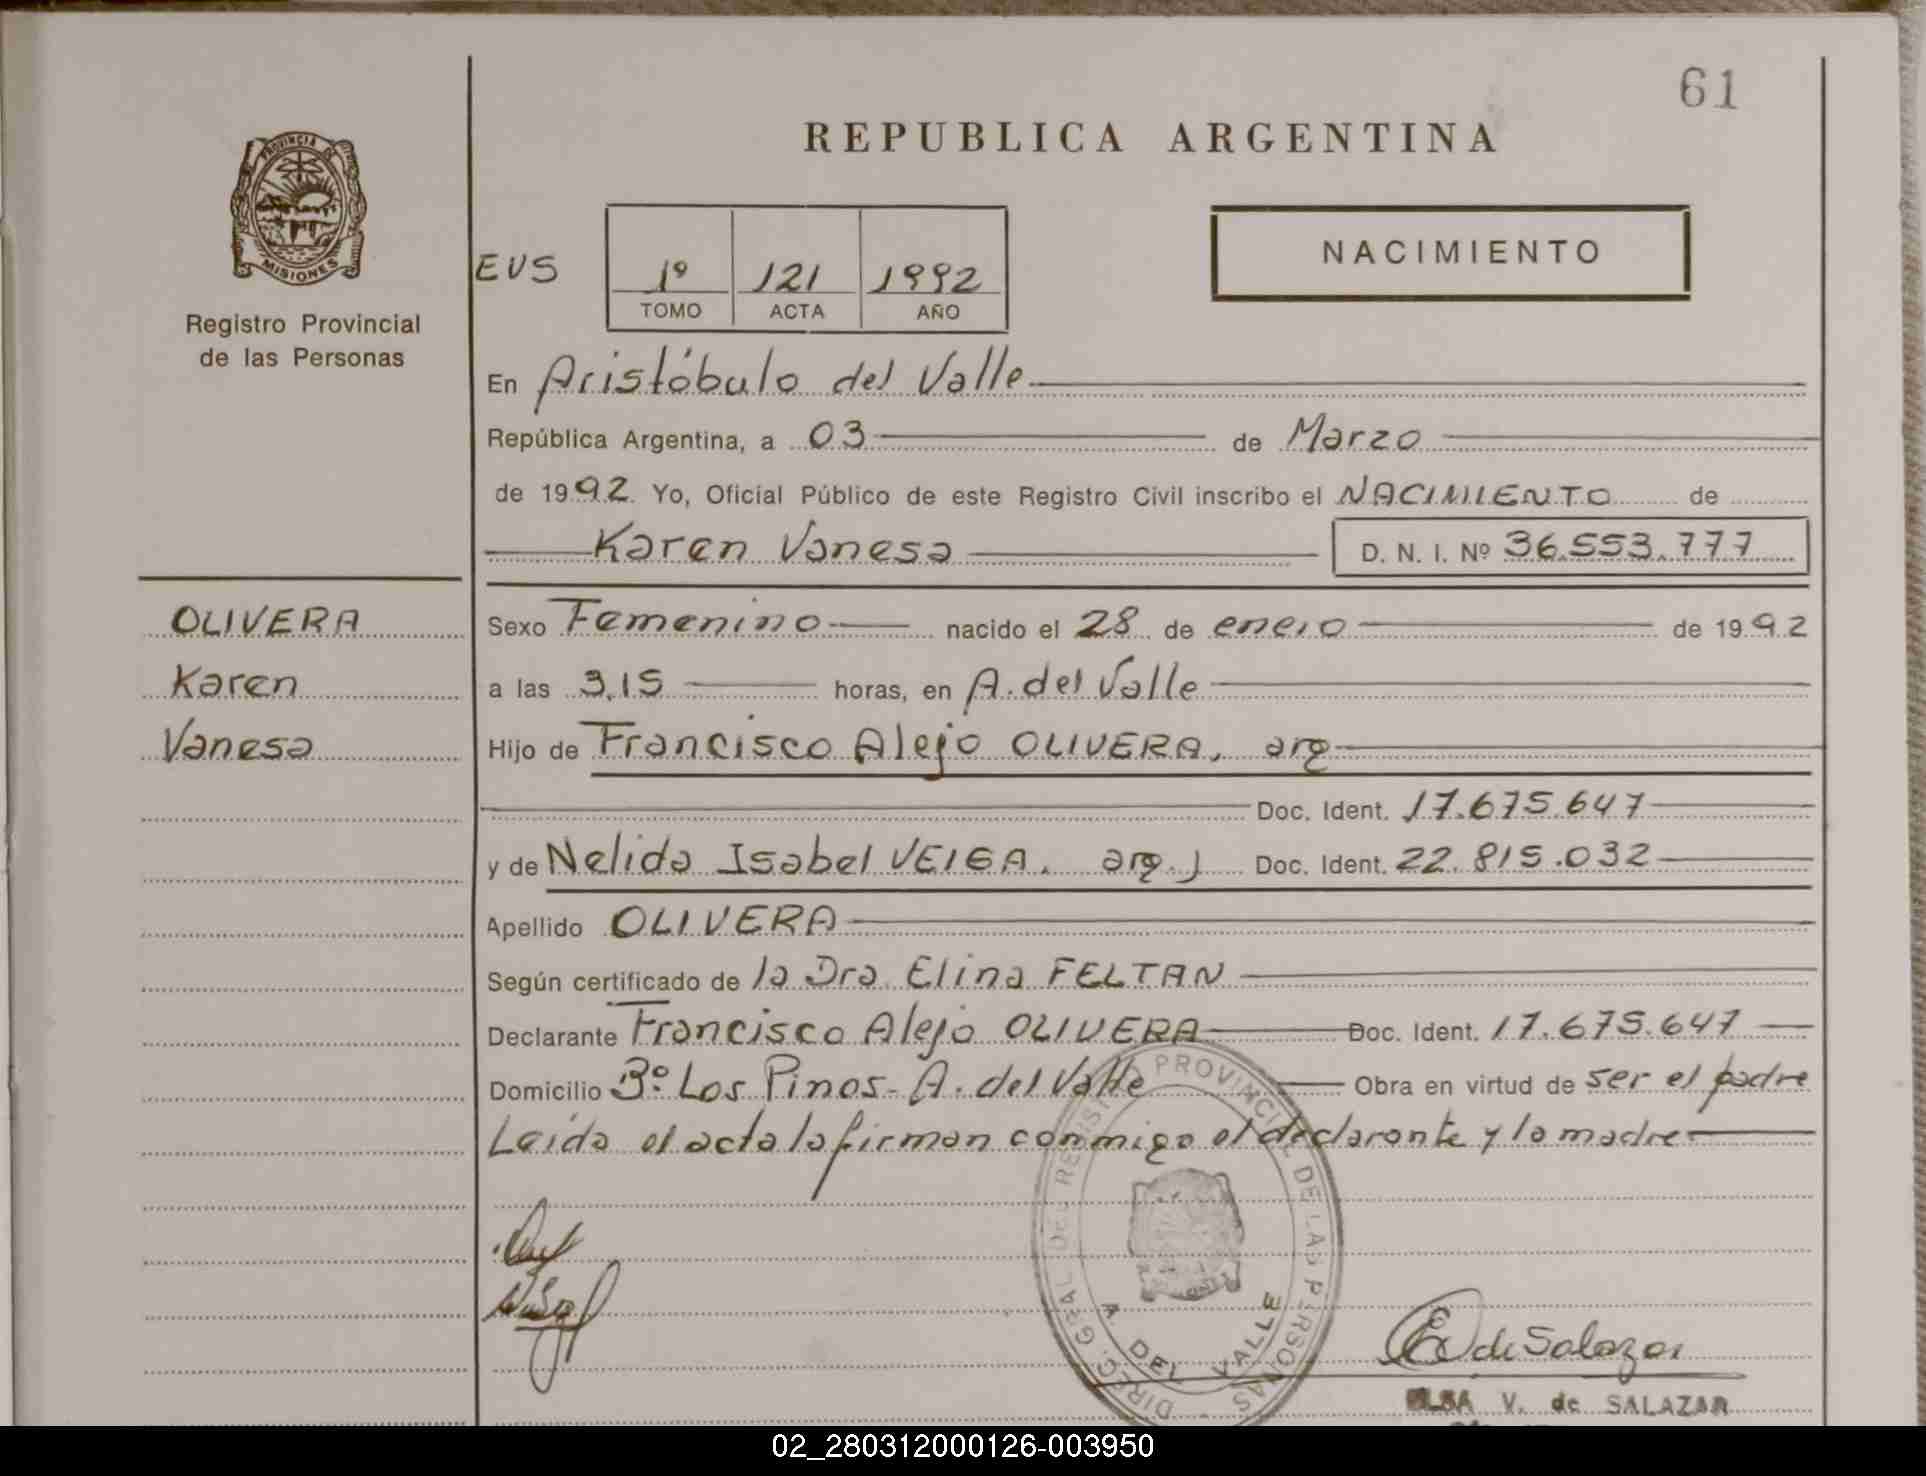 61
REPUBLICA ARGENTINA
PROVINCIA DE
MISIONES
Registro Provincial
de las Personas
EVS
1º 121 1992
TOMO ACTA AÑO
NACIMIENTO
En Aristóbulo del Valle
República Argentina, a 03 de Marzo
de 1992. Yo, Oficial Público de este Registro Civil inscribo el NACIMIENTO de
Karen Vanesa D. N. I. Nº 36.553.777
OLIVERA
Karen
Vanesa
Sexo Femenino nacido el 28 de enero de 1992
a las 3,15 horas, en A. del Valle
Hijo de Francisco Alejo OLIVERA, arg
Doc. Ident. 17.675.647
y de Nelida Isabel VEIGA. arg. Doc. Ident. 22.815.032
Apellido OLIVERA
Según certificado de la Dra. Elina FELTAN
Declarante Francisco Alejo OLIVERA Doc. Ident. 17.675.647
Domicilio Bº Los Pinos - A. del Valle Obra en virtud de ser el padre
Leída el acta la firman conmigo el declarante y la madre
DIREC. GRAL DEL REGISTRO PROVINCIAL DE LAS PERSONAS
A. DEL VALLE
EV de Salazar
ELSA V. de SALAZAR
02_280312000126-003950